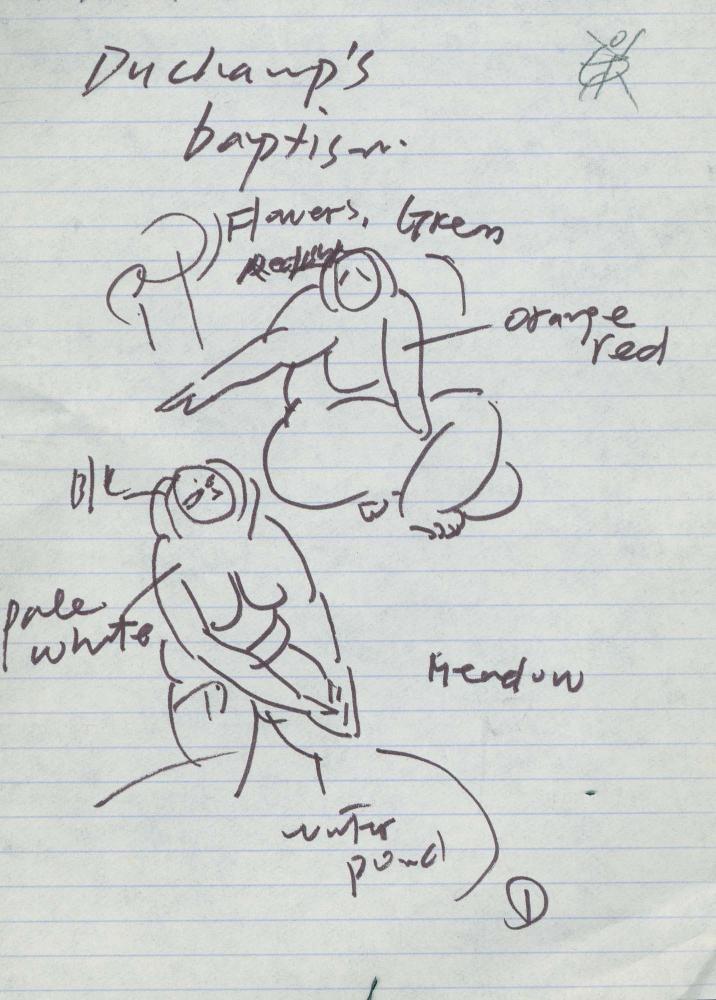 Duchamp's
baptism.
Flowers, Green
orange
red
Blk
pale
white
Meadow
water
pond
1